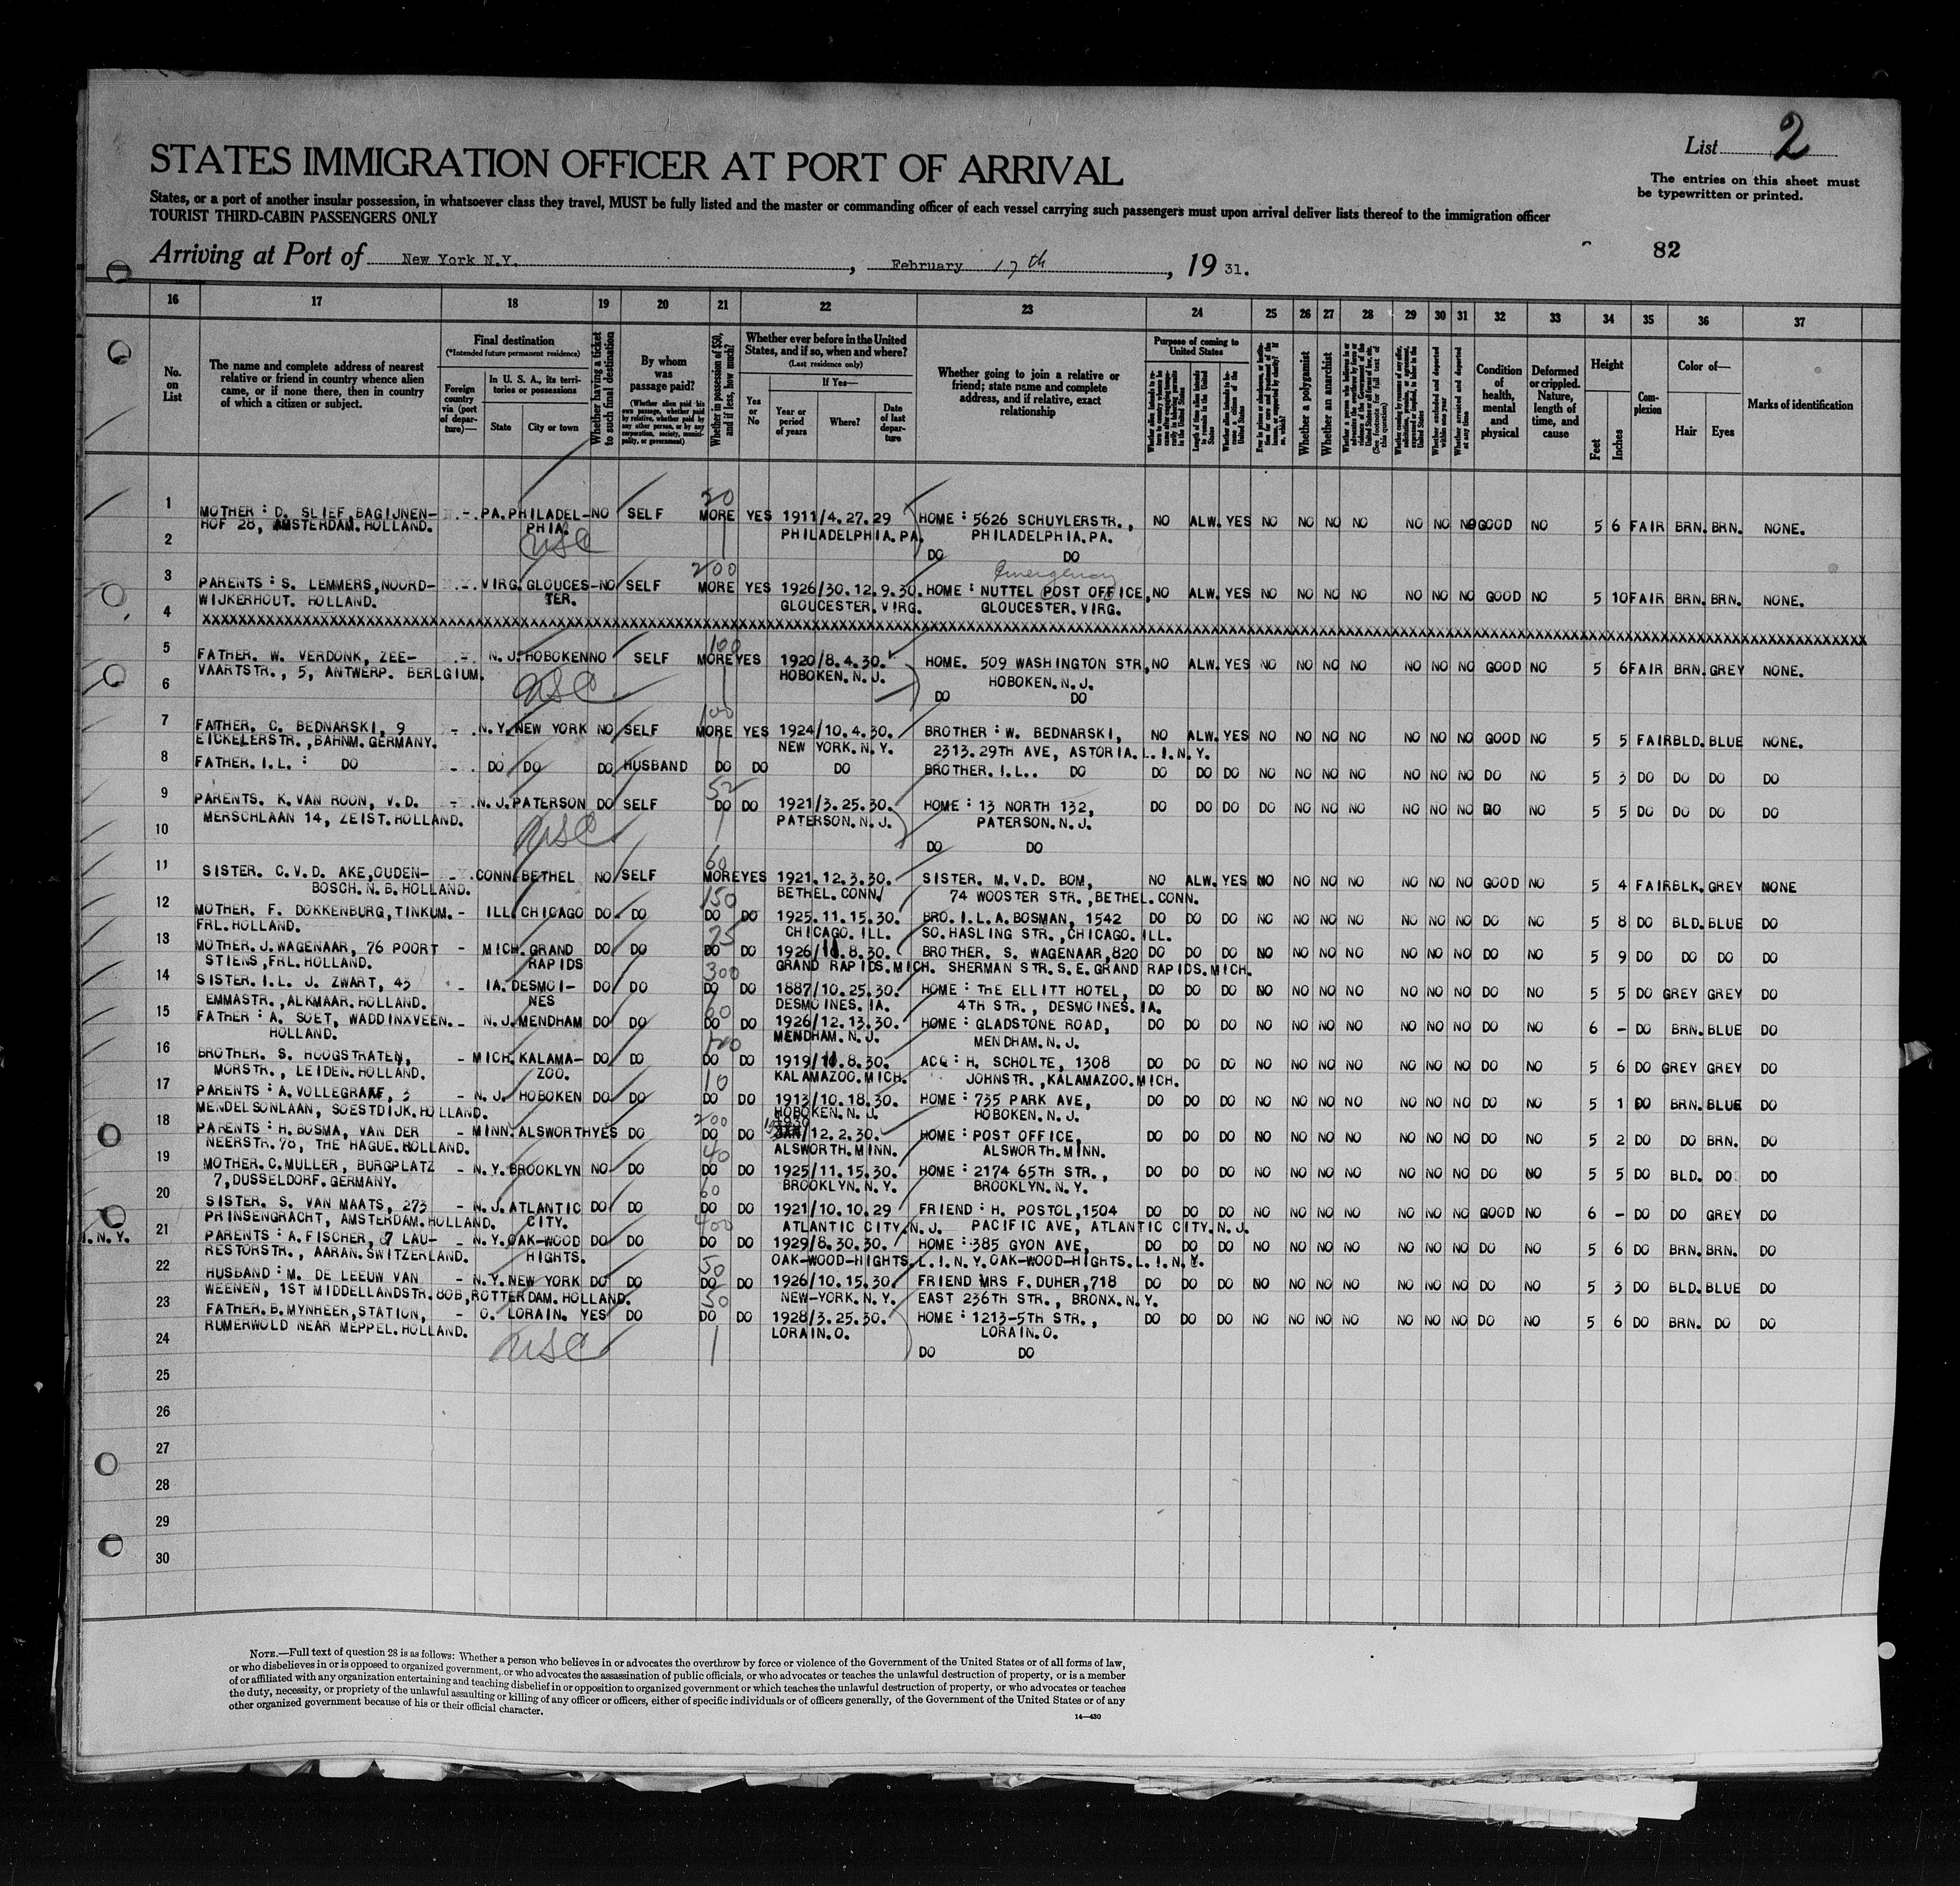 STATES IMMIGRATION OFFICER AT PORT OF ARRIVAL
List 2
The entries on this sheet must
be typewritten or printed.
States, or a port of another insular possession, in whatsoever class they travel, MUST be fully listed and the master or commanding officer of each vessel carrying such passengers must upon arrival deliver lists thereof to the immigration officer
TOURIST THIRD-CABIN PASSENGERS ONLY
82
Arriving at Port of New York N.Y. , February 17th , 19 31.
16 17 18 19 20 21 22 23 24 25 26 27 28 29 30 31 32 33 34 35 36 37
No. on List
The name and complete address of nearest
relative or friend in country whence alien
came, or if none there, then in country
of which a citizen or subject.
Final destination
(*Intended future permanent residence)
Foreign country via (port of departure)—
In U. S. A., its territories or possessions
State
City or town
Whether having a ticket to such final destination
By whom was passage paid?
(Whether alien paid his own passage, whether paid by relative, whether paid by any other person, or by any corporation, society, municipality, or government)
Whether in possession of $50, and if less, how much?
Whether ever before in the United States, and if so, when and where?
(Last residence only)
Yes or No
If Yes—
Year or period of years
Where?
Date of last departure
Whether going to join a relative or
friend; state name and complete
address, and if relative, exact
relationship
Purpose of coming to United States
Whether a polygamist
Whether an anarchist
Condition of health, mental and physical
Deformed or crippled. Nature, length of time, and cause
Height
Feet
Inches
Complexion
Color of—
Hair
Eyes
Marks of identification
1 MOTHER : D. SLIEF, BAGIJNEN- PA. PHILADEL- NO SELF 50 MORE YES 1911/4.27.29 HOME : 5626 SCHUYLERSTR., NO ALW. YES NO NO NO NO NO NO NO GOOD NO 5 6 FAIR BRN. BRN. NONE.
HOF 28, AMSTERDAM. HOLLAND. PHIA. PHILADELPHIA. PA. PHILADELPHIA. PA.
2 USC DO DO
3 PARENTS : S. LEMMERS, NOORD- VIRG. GLOUCES- NO SELF 200 MORE YES 1926/30.12.9.30. HOME : NUTTEL POST OFFICE, NO ALW. YES NO NO NO NO NO NO NO GOOD NO 5 10 FAIR BRN. BRN. NONE.
WIJKERHOUT. HOLLAND. TER. GLOUCESTER. VIRG. GLOUCESTER. VIRG.
4 XXXXXXXXXXXXXXXXXXXXXXXXXXXXXXXXXXXXXXXX
5 FATHER. W. VERDONK, ZEE- N. J. HOBOKEN NO SELF 100 MORE YES 1920/8.4.30. HOME. 509 WASHINGTON STR, NO ALW. YES NO NO NO NO NO NO NO GOOD NO 5 6 FAIR BRN. GREY NONE.
VAARTSTR., 5, ANTWERP. BERLGIUM. HOBOKEN. N. J. HOBOKEN. N. J.
6 USC DO DO
7 FATHER. C. BEDNARSKI, 9 - N.Y. NEW YORK NO SELF 100 MORE YES 1924/10.4.30. BROTHER : W. BEDNARSKI, NO ALW. YES NO NO NO NO NO NO NO GOOD NO 5 5 FAIR BLD. BLUE NONE.
EICKELERSTR., BAHNM. GERMANY. NEW YORK. N. Y. 2313. 29TH AVE, ASTORIA. L. I. N. Y.
8 FATHER. I.L. : DO - DO DO DO HUSBAND DO DO DO BROTHER. I.L.. DO DO DO DO NO NO NO NO NO NO NO DO NO 5 3 DO DO DO DO
9 PARENTS. K. VAN ROON, V.D. N. J. PATERSON DO SELF 52 DO DO 1921/3.25.30. HOME : 13 NORTH 132, DO DO DO DO NO NO NO NO NO NO DO NO 5 5 DO DO DO DO
MERSCHLAAN 14, ZEIST. HOLLAND. PATERSON. N. J. PATERSON. N. J.
10 USC DO DO
11 SISTER. C.V.D. AKE, OUDEN- CONN. BETHEL NO SELF 60 MORE YES 1921.12.3.30. SISTER. M.V.D. BOM, NO ALW. YES NO NO NO NO NO NO NO GOOD NO 5 4 FAIR BLK. GREY NONE
BOSCH. N. B. HOLLAND. BETHEL. CONN. 74 WOOSTER STR., BETHEL. CONN.
12 MOTHER. F. DOKKENBURG, TINKUM. - ILL. CHICAGO DO DO 150 DO DO 1925.11.15.30. BRO. I.L. A. BOSMAN, 1542 DO DO DO NO NO NO NO NO NO NO DO NO 5 8 DO BLD. BLUE DO
FRL. HOLLAND. CHICAGO. ILL. SO. HASLING STR., CHICAGO. ILL.
13 MOTHER. J. WAGENAAR, 76 POORT - MICH. GRAND DO DO 75 DO DO 1926/11.8.30. BROTHER. S. WAGENAAR, 820 DO DO DO NO NO NO NO NO NO NO DO NO 5 9 DO DO DO DO
STIENS, FRL. HOLLAND. RAPIDS GRAND RAPIDS. MICH. SHERMAN STR. S. E. GRAND RAPIDS. MICH.
14 SISTER. I.L. J. ZWART, 43 - IA. DESMOI- DO DO 300 DO DO 1887/10.25.30. HOME : THE ELLITT HOTEL, DO DO DO NO NO NO NO NO NO NO DO NO 5 5 DO GREY GREY DO
EMMASTR., ALKMAAR. HOLLAND. NES DESMOINES. IA. 4TH STR., DESMOINES. IA.
15 FATHER : A. SOET, WADDINXVEEN. - N. J. MENDHAM DO DO 60 DO DO 1926/12.13.30. HOME : GLADSTONE ROAD, DO DO DO NO NO NO NO NO NO NO DO NO 6 - DO BRN. BLUE DO
HOLLAND. MENDHAM. N. J. MENDHAM. N. J.
16 BROTHER. S. HOOGSTRATEN, - MICH. KALAMA- DO DO DO DO 1919/11.8.30. ACQ : H. SCHOLTE, 1308 DO DO DO NO NO NO NO NO NO NO DO NO 5 6 DO GREY GREY DO
MORSTR., LEIDEN. HOLLAND. ZOO. KALAMAZOO. MICH. JOHNSTR., KALAMAZOO. MICH.
17 PARENTS : A. VOLLEGRAAF, 3 - N. J. HOBOKEN DO DO 10 DO DO 1913/10.18.30. HOME : 735 PARK AVE, DO DO DO NO NO NO NO NO NO NO DO NO 5 1 DO BRN. BLUE DO
MENDELSONLAAN, SOESTDIJK. HOLLAND. HOBOKEN. N. J. HOBOKEN. N. J.
18 PARENTS : H. BOSMA, VAN DER - MINN. ALSWORTH YES DO 200 DO DO 1930 /12.2.30. HOME : POST OFFICE, DO DO DO NO NO NO NO NO NO NO DO NO 5 2 DO DO BRN. DO
NEERSTR. 78, THE HAGUE. HOLLAND. ALSWORTH. MINN. ALSWORTH. MINN.
19 MOTHER. C. MULLER, BURGPLATZ - N. Y. BROOKLYN NO DO 40 DO DO 1925/11.15.30. HOME : 2174 65TH STR., DO DO DO NO NO NO NO NO NO NO DO NO 5 5 DO BLD. DO DO
7, DUSSELDORF. GERMANY. BROOKLYN. N. Y. BROOKLYN. N. Y.
20 SISTER. S. VAN MAATS, 273 - N. J. ATLANTIC DO DO 60 DO DO 1921/10.10.29 FRIEND : H. POSTOL, 1504 DO DO DO NO NO NO NO NO NO NO GOOD NO 6 - DO DO GREY DO
PRINSENGRACHT, AMSTERDAM. HOLLAND. CITY. ATLANTIC CITY. N. J. PACIFIC AVE, ATLANTIC CITY. N. J.
I. N. Y. 21 PARENTS : A. FISCHER, 67 LAU- - N. Y. OAK-WOOD DO DO 400 DO DO 1929/8.30.30. HOME : 385 GYON AVE, DO DO DO NO NO NO NO NO NO NO DO NO 5 6 DO BRN. BRN. DO
RESTORSTR., AARAN. SWITZERLAND. HIGHTS. OAK-WOOD-HIGHTS. L. I. N. Y. OAK-WOOD-HIGHTS. L. I. N. Y.
22 HUSBAND : M. DE LEEUW VAN - N. Y. NEW YORK DO DO 50 DO DO 1926/10.15.30. FRIEND MRS F. DUHER, 718 DO DO DO NO NO NO NO NO NO NO DO NO 5 3 DO BLD. BLUE DO
WEENEN, 1ST MIDDELLANDSTR. 80B, ROTTERDAM. HOLLAND. NEW-YORK. N. Y. EAST 236TH STR., BRONX. N. Y.
23 FATHER. B. MYNHEER, STATION, - O. LORAIN. YES DO 50 DO DO 1928/3.25.30. HOME : 1213-5TH STR., DO DO DO NO NO NO NO NO NO NO DO NO 5 6 DO BRN. DO DO
RUMERWOLD NEAR MEPPEL. HOLLAND. LORAIN. O. LORAIN. O.
24 USC DO DO
25
26
27
28
29
30
NOTE.—Full text of question 28 is as follows: Whether a person who believes in or advocates the overthrow by force or violence of the Government of the United States or of all forms of law,
or who disbelieves in or is opposed to organized government, or who advocates the assassination of public officials, or who advocates or teaches the unlawful destruction of property, or is a member
of or affiliated with any organization entertaining and teaching disbelief in or opposition to organized government or which teaches the unlawful destruction of property, or who advocates or teaches
the duty, necessity, or propriety of the unlawful assaulting or killing of any officer or officers, either of specific individuals or of officers generally, of the Government of the United States or of any
other organized government because of his or their official character.
14—430